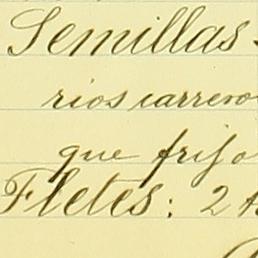 Semillas
rios carrero
que frijo
Fletes: 2